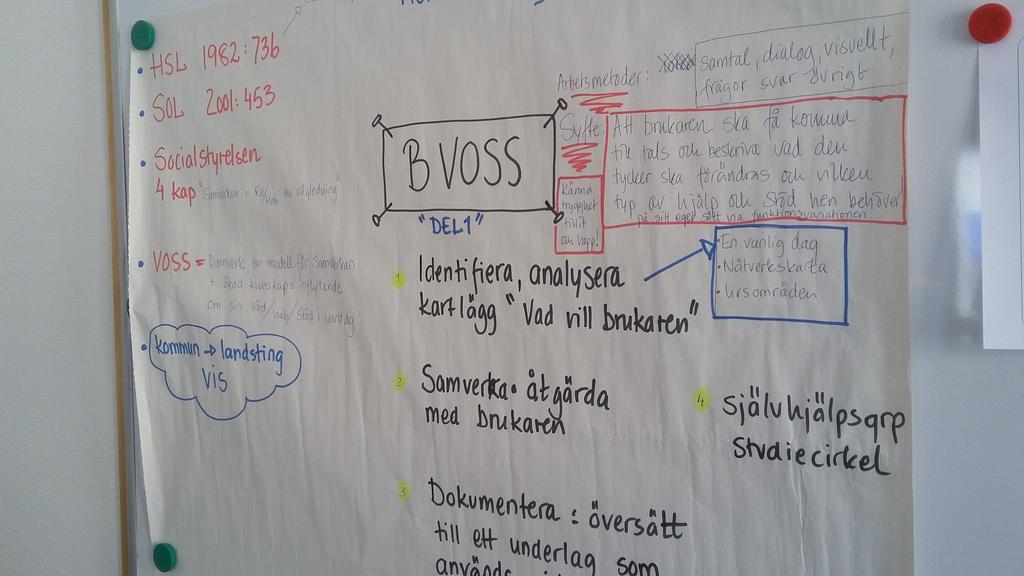 • HSL 1982:736
• SOL 2001:453
• Socialstyrelsen
4 kap "Samverkan i Re/Hab
• VOSS = Ramverk, en modell för Samverkan
+ ökad kunskaps inflytande
om sin vård/hab/stöd i vardag
• kommun → landsting
VIS
B VOSS
"DEL1"
Arbetsmetoder:
samtal, dialog, visuellt,
frågor svar övrigt
Syfte:
Att brukaren ska få komma
till tals och beskriva vad den
tycker ska förändras och vilken
typ av hjälp och stöd hen behöver
på sitt eget sätt via funktionsvariationen!
Känna
trygghet
tillit
och hopp!
1 Identifiera, analysera
kartlägg "Vad vill brukaren"
• En vanlig dag
• Nätverkskarta
• Livsområden
2 Samverka • åtgärda
med brukaren
3 Dokumentera : översätt
till ett underlag som
4 Självhjälpsgrp
studiecirkel